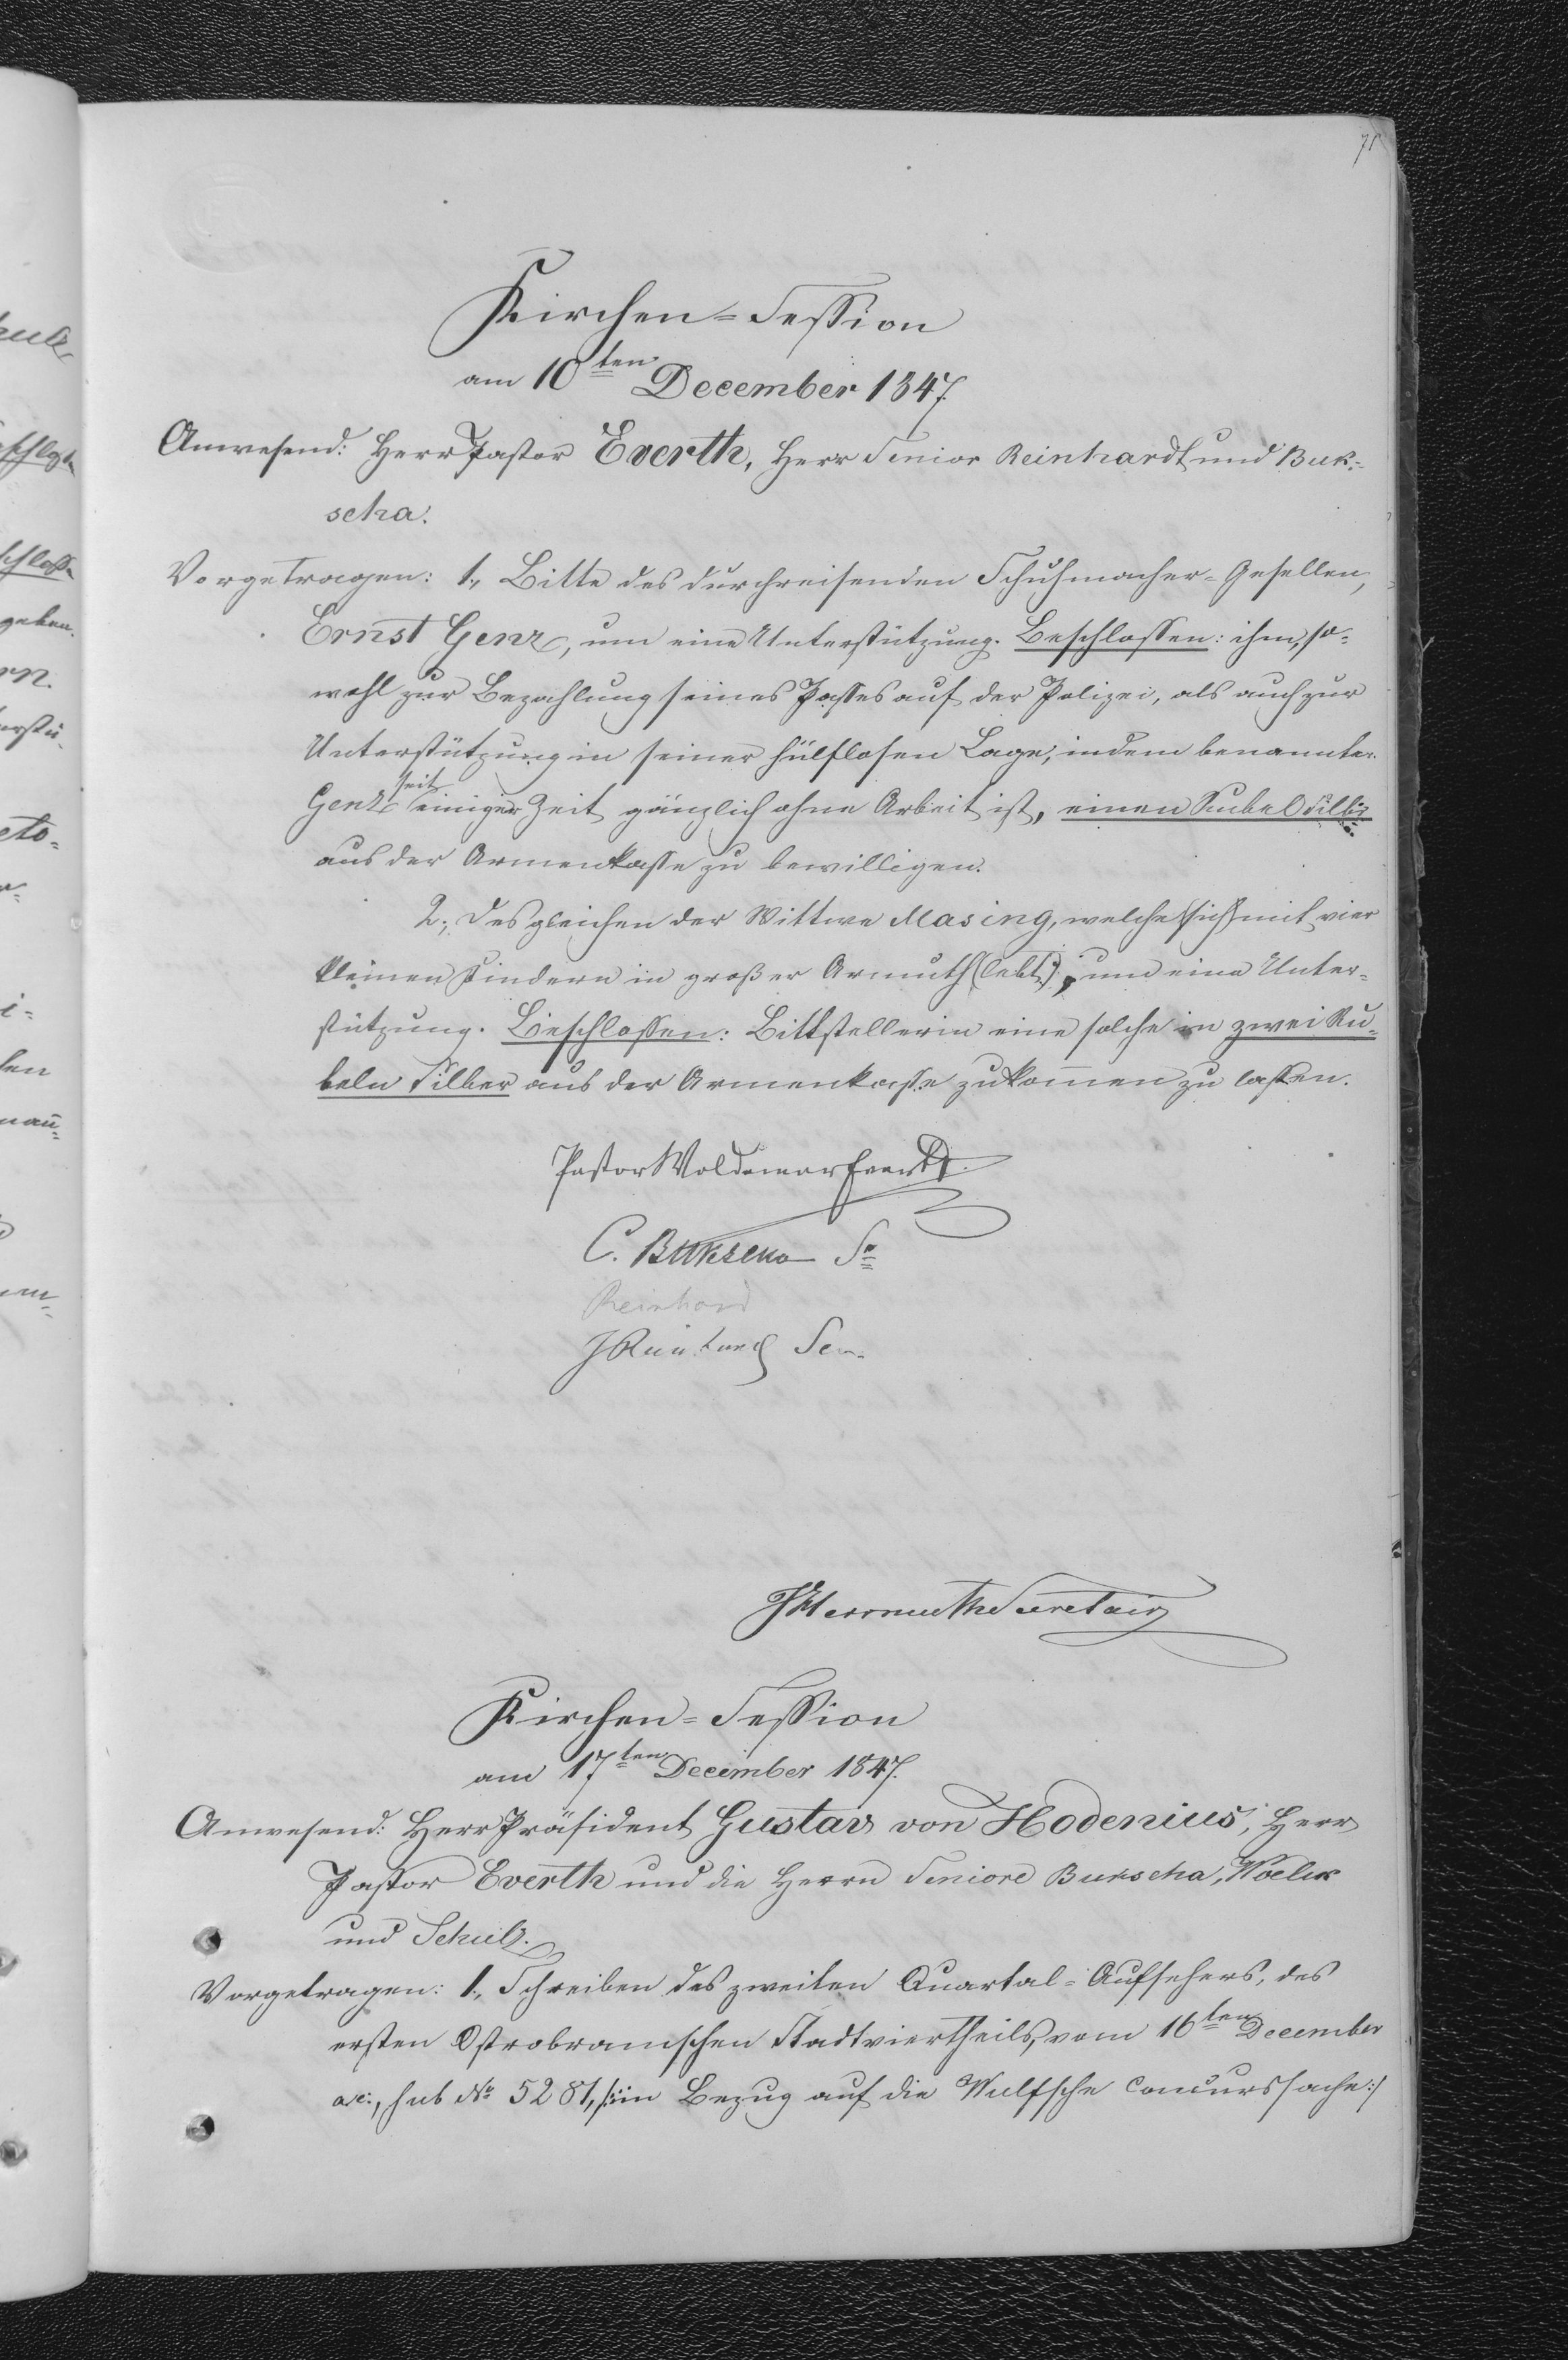 71
Kirchen-Session
am 10ten December 1847.
Anwesend: Herr Pastor Everth, Herr Senior Reinhardt und Buk-
scha.
Vorgetragen: 1., Bitte des durchreisenden Schuhmacher-Gesellen,
Ernst Genz, um eine Unterstützung. Beschlossen: ihm, so-
wohl zur Bezahlung seines Passes auf der Polizei, als auch zur
Unterstützung in seiner hülflosen Lage, indem benannter
Genz seit einiger Zeit gänzlich ohne Arbeit ist, einen Rubel Silber
aus der Armenkasse zu bewilligen.
2., Desgleichen der Wittwe Masing, welche (sich) mit vier
kleinen Kindern in großer Armuth (lebt), um eine Unter-
stützung. Beschlossen: Bittstellerin eine solche in zwei Ru-
beln Silber aus der Armenkasse zukommen zu lassen.
Pastor Woldemar Everth.
C. Bukscha Sr
Reinhard
J Reinhard Sen.
Hermuth Secretair
Kirchen-Session
am 17ten December 1847.
Anwesend: Herr Präsident Gustav von Hodenius, Herr
Pastor Everth und die Herrn Seniore Bukscha, Woelck
und Schulz.
Vorgetragen: 1., Schreiben des zweiten Quartal-Aufsehers, des
ersten Ostrobramschen Stadtviertheils, vom 16ten December
a. c., sub No 5281, /: in Bezug auf die Wulfsche Concurssache :/